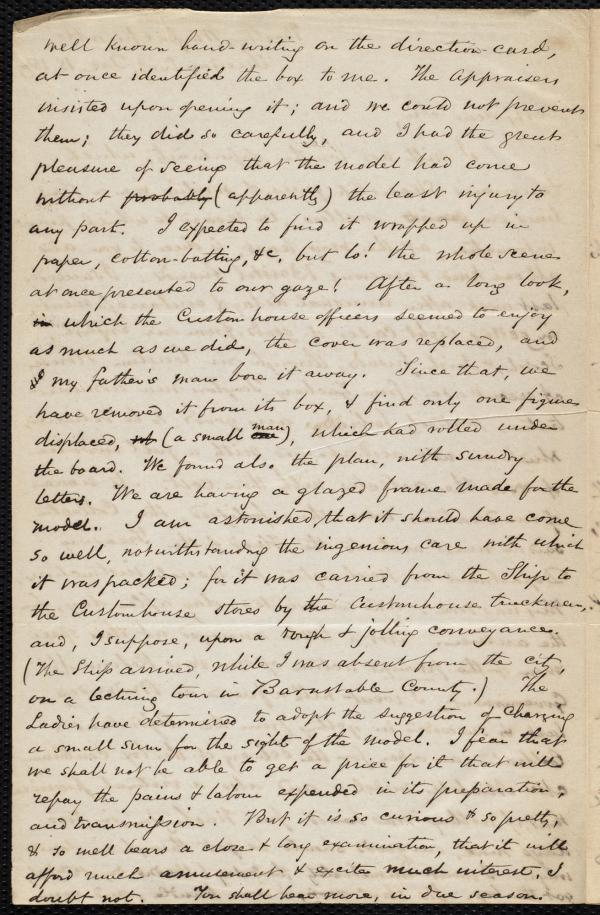 well known hand-writing on the direction-card,
at once identified the box to me. The Appraisers
insisted upon opening it; and we could not prevent
them; they did so carefully, and I had the great
pleasure of seeing that the model had come
without probably (apparently) the least injury to
any part. I expected to find it wrapped up in
paper, cotton-batting, &c, but lo! the whole scene
at once presented to our gaze! After a long look,
in which the Customhouse officers seemed to enjoy
as much as we did, the cover was replaced, and
my father's man bore it away. Since that, we
have removed it from its box, & find only one figure
displaced, (a small man), which had rolled under
the board. We found also the plan, with sundry
letters. We are having a glazed frame made for the
model. I am astonished, that it should have come
so well, notwithstanding the ingenious care with which
it was packed; for it was carried from the Ship to
the Customhouse stores by the Customhouse truckmen,
and, I suppose, upon a rough & jolting conveyance.
(The Ship arrived, while I was absent from the city,
on a lecturing tour in Barnstable County.) The
Ladies have determined to adopt the suggestion of charging
a small sum for the sight of the model. I fear that
we shall not be able to get a price for it that will
repay the pains & labour expended in its preparation,
and transmission. But it is so curious & so pretty,
& so well bears a close & long examination, that it will
afford much amusement & excite much interest, I
doubt not. You shall hear more, in due season.